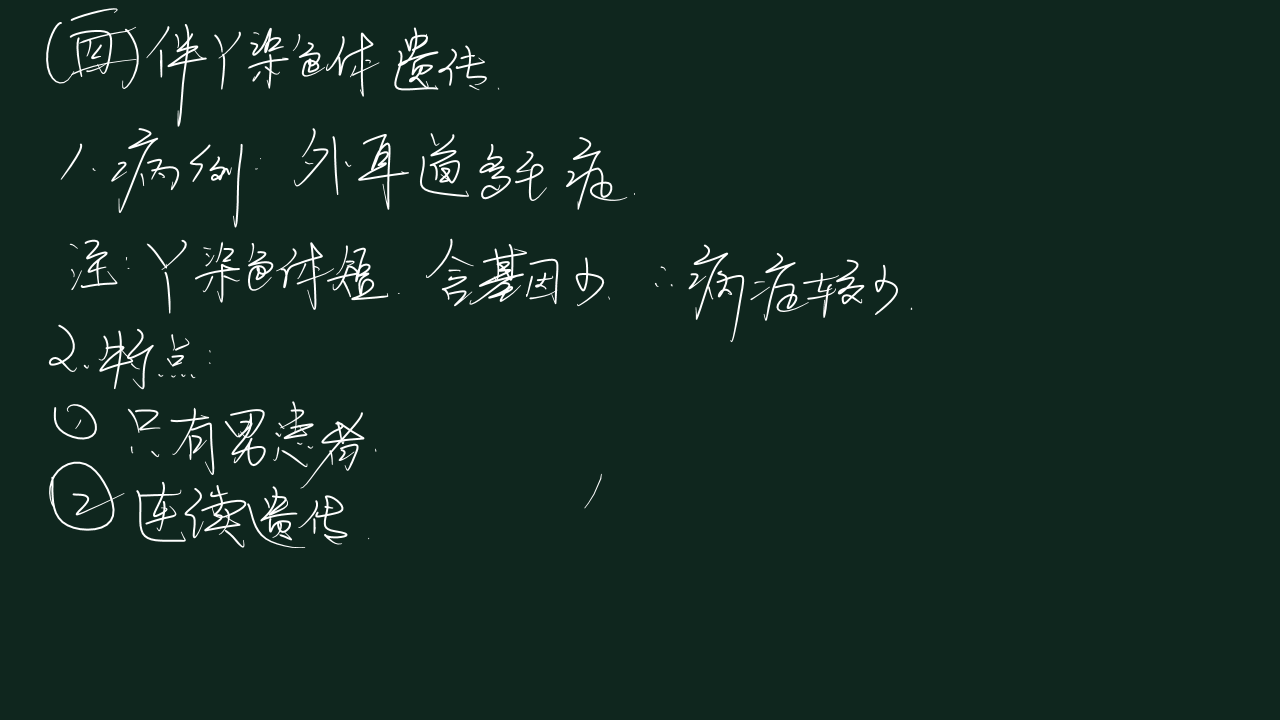 (四)伴Y染色体遗传.
1.病例:外耳道多毛症.
注:Y染色体短.含基因少.∴病症较少.
2.特点:
① 只有男患者.
② 连续遗传.